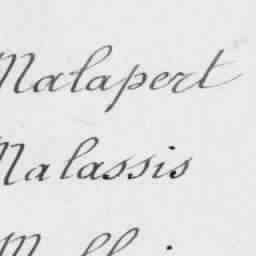 Malapert
Malassis